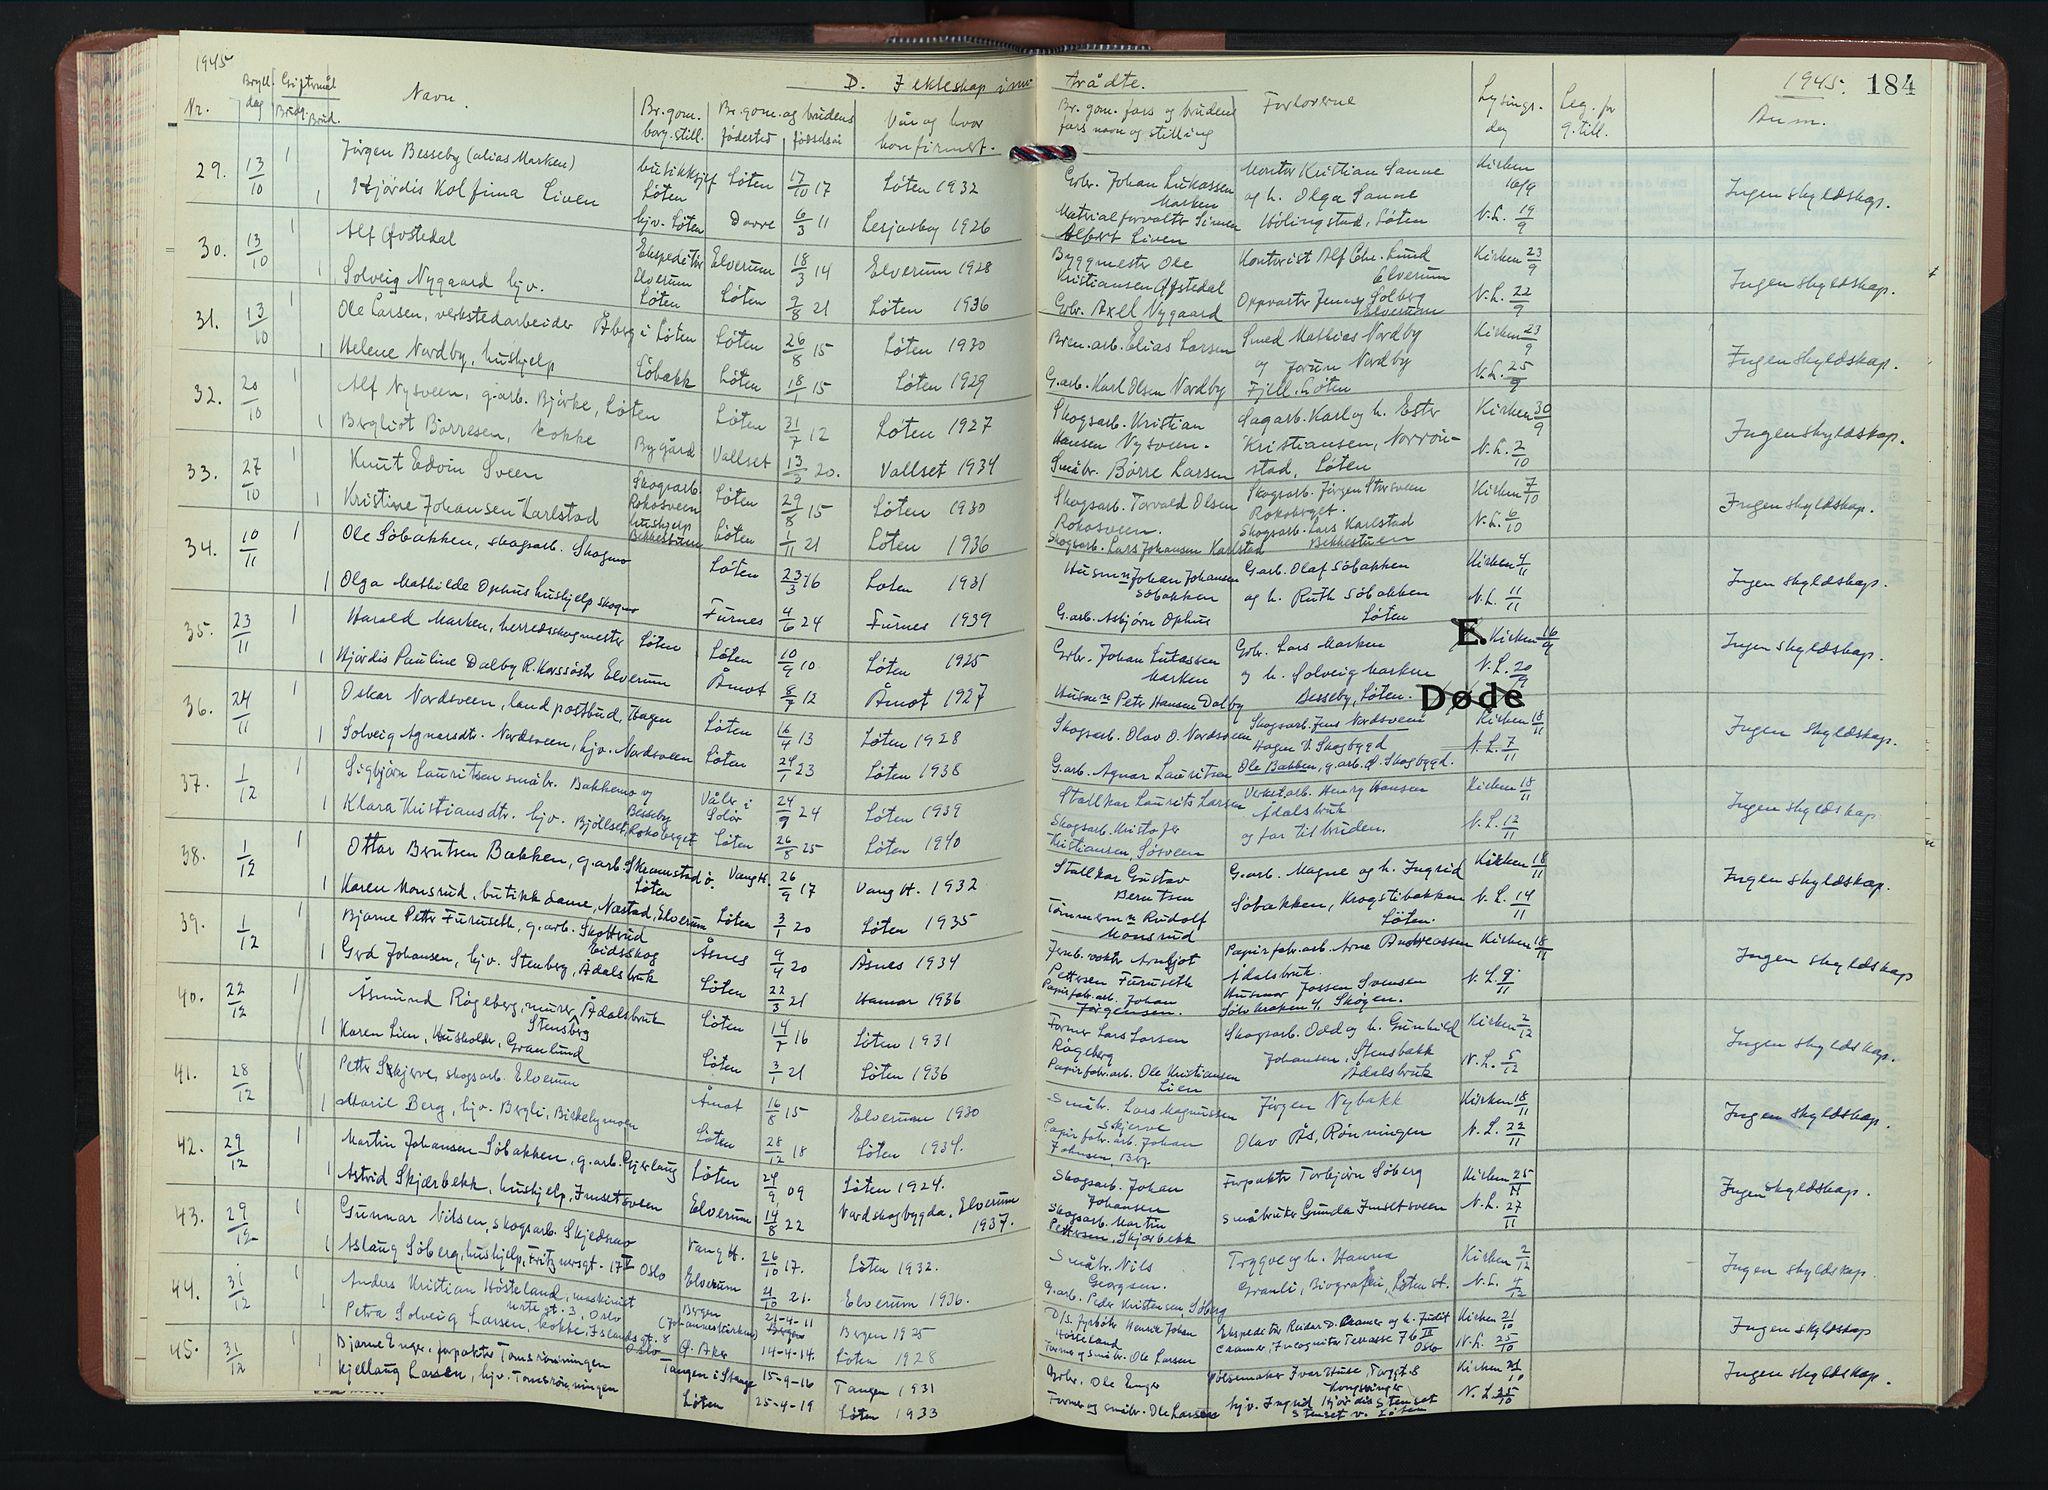 1945
D. I ekteskap inn-
trådte.
1945. 184
Nr. Bryll. dag Giftermål Brudg. Brud. Navn. Br.gom. borg. still. Br.gom. og brudens fødested fødselsår Når og hvor konfirmert. Br.gom. fars og brudens fars navn og stilling Forloverne Lysings- dag Leg. for g. till. Anm.
29. 13/10 1 Jörgen Besseby (alias Marken) butikksjef Løten Løten 17/10 17 Løten 1932 Grbr. Johan Lukassen Marken Montør Kristian Sanne Kirken 16/9 Ingen skyldskap.
1 Hjördis Kolfinna Liven hjv. Løten Dovre 6/3 11 Lesjaskog 1926 Materialforvalter Simen Albert Liven og h. Olga Sanne Hölingstad, Løten N.L. 19/9
30. 13/10 1 Alf Øfstedal Ekspeditör Elverum Elverum 18/3 14 Elverum 1928 Byggmester Ole Kristiansen Øfstedal Kontorist Alf Chr. Lund Elverum Kirken 23/9 Ingen skyldskap.
1 Solveig Nygaard hjv. Løten Løten 9/8 21 Løten 1936 Grbr. Axel Nygaard Oppvarter Jenny Solberg Elverum N.L. 22/9
31. 13/10 1 Ole Larsen, verkstedarbeider Åberg i Løten Løten 26/8 15 Løten 1930 Bren.arb. Elias Larsen Smed Mathias Nordby Kirken 23/9 Ingen skyldskap.
1 Helene Nordby, hushjelp Söbakk Løten 18/1 15 Løten 1929 G.arb. Karl Olsen Nordby og Jorun Nordby Fjell, Løten N.L. 25/9
32. 20/10 1 Alf Nysveen, g.arb. Björke, Løten Løten 31/7 12 Løten 1927 Skogsarb. Kristian Hansen Nysveen. Sagarb. Karl og h. Ester Kirken 30/9 Ingen skyldskap.
1 Bergliot Börresen, kokke Bygård Vallset 13/3 20. Vallset 1934 Småbr. Börre Larsen Kristiansen, Norrön- stad, Løten N.L. 2/10
33. 27/10 1 Knut Edvin Sveen Skogsarb. Rokosveen Løten 29/8 15 Løten 1930 Skogsarb. Torvald Olsen Rokosveen. Skogsarb. Jörgen Storsveen Rokoberget. Kirken 7/10 Ingen skyldskap.
1 Kristine Johansen Karlstad hushjelp Bekkestuen Løten 1/11 21 Løten 1936 Skogsarb. Lars Johansen Karlstad Skogsarb. Lars Karlstad Bekkestuen N.L. 6/10
34. 10/11 1 Ole Söbakken, skogsarb. Skogmo Løten 23/3 16 Løten 1931 Husmn Johan Johansen Söbakken G.arb. Olaf Söbakken Kirken 4/11 Ingen skyldskap.
1 Olga Mathilde Ophus hushjelp Skogmo Furnes 4/6 24 Furnes 1939 G.arb. Asbjörn Ophus og h. Ruth Söbakken Løten N.L. 11/11
35. 23/11 1 Harald Marken, herredsskogmester Løten Løten 10/9 10 Løten 1925 Grbr. Johan Lukassen Marken Grbr. Lars Marken E. Kirken 16/9 Ingen skyldskap.
1 Hjördis Pauline Dalby R. Korssöster Elverum Åmot 8/7 12 Åmot 1927 Husmn Peter Hansen Dalby og h. Solveig Marken Besseby, Løten. N.L. 20/9
Døde
36. 24/11 1 Oskar Nordsveen, landpostbud, Hagen Løten 16/4 13 Løten 1928 Skogsarb. Olav O. Nordsveen Skogsarb. Jens Nordsveen Hagen V. Skogbygd Kirken 18/11 Ingen skyldskap.
1 Solveig Agnarsdtr. Nordsveen, hjv. Nordsveen Løten 24/1 23 Løten 1938 G.arb. Agnar Lauritsen Ole Bakken, g.arb. Ø. Skogbygd. N.L. 7/11
37. 1/12 1 Sigbjörn Lauritsen småbr. Bakkemo og Besseby Våler i Solör 24/9 24 Løten 1939 Stallkar Laurits Larsen Verkst.arb. Henry Hansen Ådalsbruk Kirken 18/11 Ingen skyldskap
1 Klara Kristiansdtr. hjv. Bjöllset, Rokoberget Løten 26/8 25 Løten 1940 Skogsarb. Kristofer Kristiansen, Sösveen og far til bruden. N.L. 12/11
38. 1/12 1 Ottar Berntsen Bakken, g.arb. Skramstad ö. Løten Vang H. 26/9 17 Vang H. 1932 Stallkar Gustav Berntsen G.arb. Magne og h. Ingrid Kirken 18/11 Ingen skyldskap.
1 Karen Monsrud, butikkdame, Næstad, Elverum Løten 3/1 20 Løten 1935 Tömmermn Rudolf Monsrud Söbakken, Krogstibakken Løten. N.L. 14/11
39. 1/12 1 Bjarne Petter Furuseth, g.arb. Skottrud Eidsskog Åsnes 9/4 20 Åsnes 1934 Jernb.vokter Arnljot Pettersen Furuseth Papirfabr.arb. Arne Andreassen Ådalsbruk. Kirken 18/11 Ingen skyldskap
1 Gerd Johansen, hjv. Stenberg, Ådalsbruk Løten 22/3 21 Hamar 1936 Papirfabr.arb. Johan Jörgensen. Husmor Jossen Svensen Sölvkroken 4, Skøyen. N.L. 9/11
40. 22/12 1 Åsmund Rögeberg, murer, Ådalsbruk Stensberg Løten 14/7 16 Løten 1931 Former Lars Larsen Rögeberg Skogsarb. Odd og h. Gunhild Kirken 2/12 Ingen skyldskap.
1 Karen Lien, Husholder, Granlund Løten 3/1 21 Løten 1936 Papirfabr.arb. Ole Kristiansen Lien Johansen, Stensbakk Ådalsbruk N.L. 5/12
41. 28/12 1 Petter Skjerve, skogsarb. Elverum Åmot 16/8 15 Elverum 1930 Småbr. Lars Magnussen Skjerve Jörgen Nybakk Kirken 18/11 Ingen skyldskap.
1 Maril Berg, hjv. Bergli, Birkebymoen Løten 28/12 18 Løten 1934. Papirfabr.arb. Johan Johnsen, Berg Olav Ås, Rønningen N.L. 22/11
42. 29/12 1 Martin Johansen Söbakken, g.arb. Gjerlaug Løten 24/9 09 Løten 1924. Skogsarb. Johan Johansen Forpakter Torbjörn Söberg Kirken 25/11 Ingen skyldskap.
1 Astrid Skjærbekk, hushjelp, Imsetsveen Elverum 14/8 22 Nordskogbygda, Elverum 1937. Skogsarb. Martin Pettersen, Skjærbekk Småbruker Gunda Imsetsveen N.L. 27/11
43. 29/12 1 Gunnar Nilsen, skogsarb. Skjedsmo Vang H. 26/10 17. Løten 1932. Småbr. Nils Georgsen. Trygve og h. Hanna Kirken 2/12 Ingen skyldskap.
1 Aslaug Söberg, hushjelp, Fritznersgt. 17 Oslo Elverum 21. Elverum 1936. G.arb. Peder Kristensen Söberg Granli, Biografen, Løten st. N.L. 4/12
44. 31/12 1 Anders Kristian Hösteland, maskinist gt. 3, Oslo Bergen (Johanneskirken) 21-4-11 Bergen 1925 D/s. fyrböter Henrik Johan Hösteland Ekspeditör Reidar D. Cramer og h. Judit Kirken 21/10 Ingen skyldskap
1 Petra Solveig Larsen, kokke, Islands gt. 8 Oslo Ø. Aker 14-4-14. Løten 1928 Former og småbr. Ole Larsen Cramer, Incognito Terrasse 76 III Oslo N.L. 25/10
45. 31/12 1 Bjarne Enger, forpakter Tomsrönningen Tangen i Stange 15-9-16 Tangen 1931 Grbr. Ole Enger Pölsemaker Ivar Huse, Kongsvinger Kirken 21/10 Ingen skyldskap.
1 Kjellaug Larsen, hjv. Tomsrönningen Løten 25-4-19 Løten 1933 Former og småbr. Ole Larsen hjv. Ingrid Hjördis Stenset Stenset v. Løten N.L. 25/10